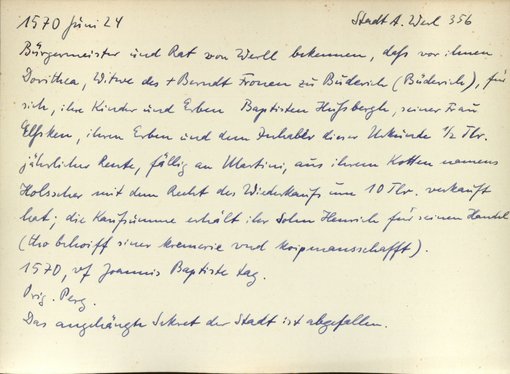 1570 Juni 24 Stadt A. Werl 356
Bürgermeister und Rat von Werll bekennen, daß vor ihnen
Dorithea, Witwe des + Berndt Fronen zu Buderich (Büderich), für
sich, ihre Kinder und Erben Baptisten Hußbergh, seiner Frau
Elßken, ihren Erben und dem Inhaber dieser Urkunde 1/2 Tlr.
jährlicher Rente, fällig an Martini, aus ihrem Kotten namens
Holscher mit dem Recht des Wiederkaufs um 10 Tlr. verkauft
hat; die Kaufsumme erhält ihr Sohn Henrich für seinen Handel
(tho behoiff siner kremerie vnd koipmansschafft).
1570, vf Joannis Baptiste tag.
Orig. Perg.
Das angehängte Sekret der Stadt ist abgefallen.